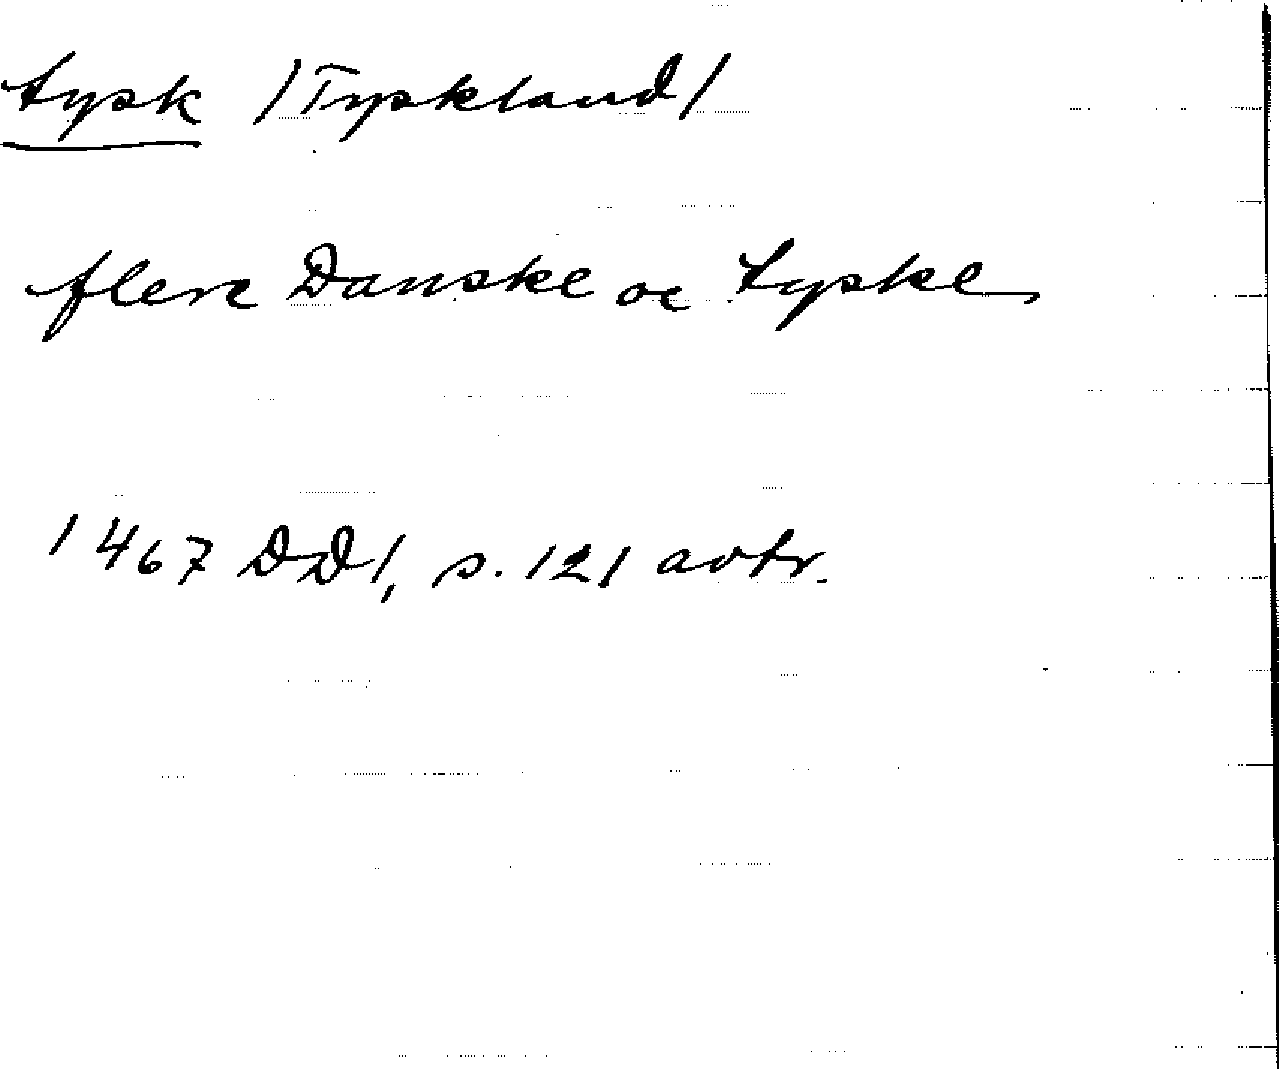 tysk /Tyskland/
flere Danske oc tyske
1467 DD1, s. 121 avtr.